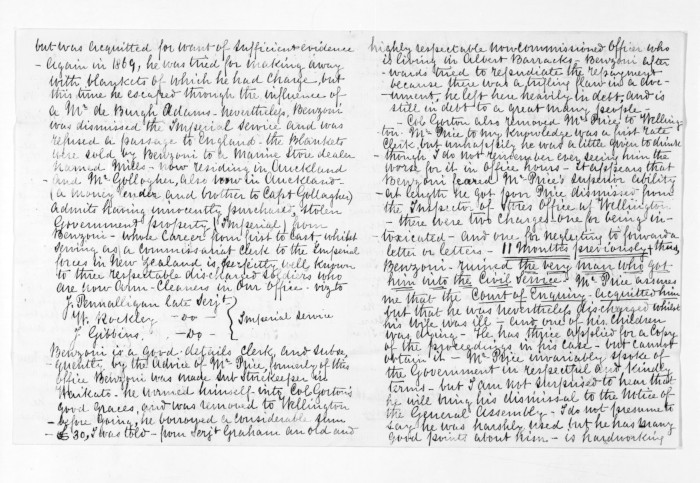 but was acquitted for want of sufficient evidence
- again in 1869, he was tried for making away
with blankets of which he had charge, but
this time he escaped through the influence of
a Mr de Burgh Adams - nevertheless, Benzoni
was dismissed the Imperial Service and was
refused a passage to England - the blankets
were sold by Benzoni to a Marine Store dealer
named Mills - now residing in Auckland
- and Mr Gollogher, also now in Auckland -
(a money lender and brother to Capt Gollagher)
admits having innocently purchased, stolen
Government property (Imperial) from
Benzoni - whose career from first to last - whilst
serving as a commissariat Clerk to the Imperial
forces in New Zealand is perfectly well known
to three respectable discharged soldiers who
are now Arm-Cleaners in our Office - viz to
J. Pennalligan late Serjt
W. Rockley - do - Imperial Service
J Gibbins - Do -
Benzoni is a good details Clerk, and subse,
quently by the advice of Mr Price, formerly of this
office Benzoni was made Sub Storekeeper in
Waikato - he wormed himself into Col Gorton's
good graces, and was removed to Wellington
- before going, he borrowed a considerable sum
- £30, I was told - from Serjt Graham an old and
highly respectable noncommissioned Officer who
is living in Albert Barracks - Benzoni after
wards tried to repudiate the repayment
because there was a trifling flaw in a doc-
-ument, he left here heavily in debt, and is
still in debt to a great many people -
- Col Gorton also removed Mr Price to Welling
ton - Mr Price to my knowledge was a first rate
Clerk, but unhappily he was a little given to drink
- though I do not remember ever seeing him the
worse for it in office hours - it appears that
Benzoni feared Mr Price's superior ability
- at length he got poor Price dismissed from
the Inspector of Stores Office at Wellington
- there were two charges one for being in-
-toxicated - and one for neglecting to forward a
letter or letters - 11 Months previously; thus,
Benzoni - ruined the very man who got
him into the Civil Service - Mr Price assures
me that the Court of Enquiry - acquitted him
but that he was nevertheless discharged whilst
his wife was ill - and one of his children
was dying - He has thrice applied for a copy
of the proceedings in his case - but cannot
obtain it - Mr Price invariably spoke of
the Government in respectful and kindly
terms - but I am not surprised to hear that
he will bring his dismissal to the Notice of
the General Assembly - I do not presume to
say he was harshly used but he has many
good points about him - is hardworking